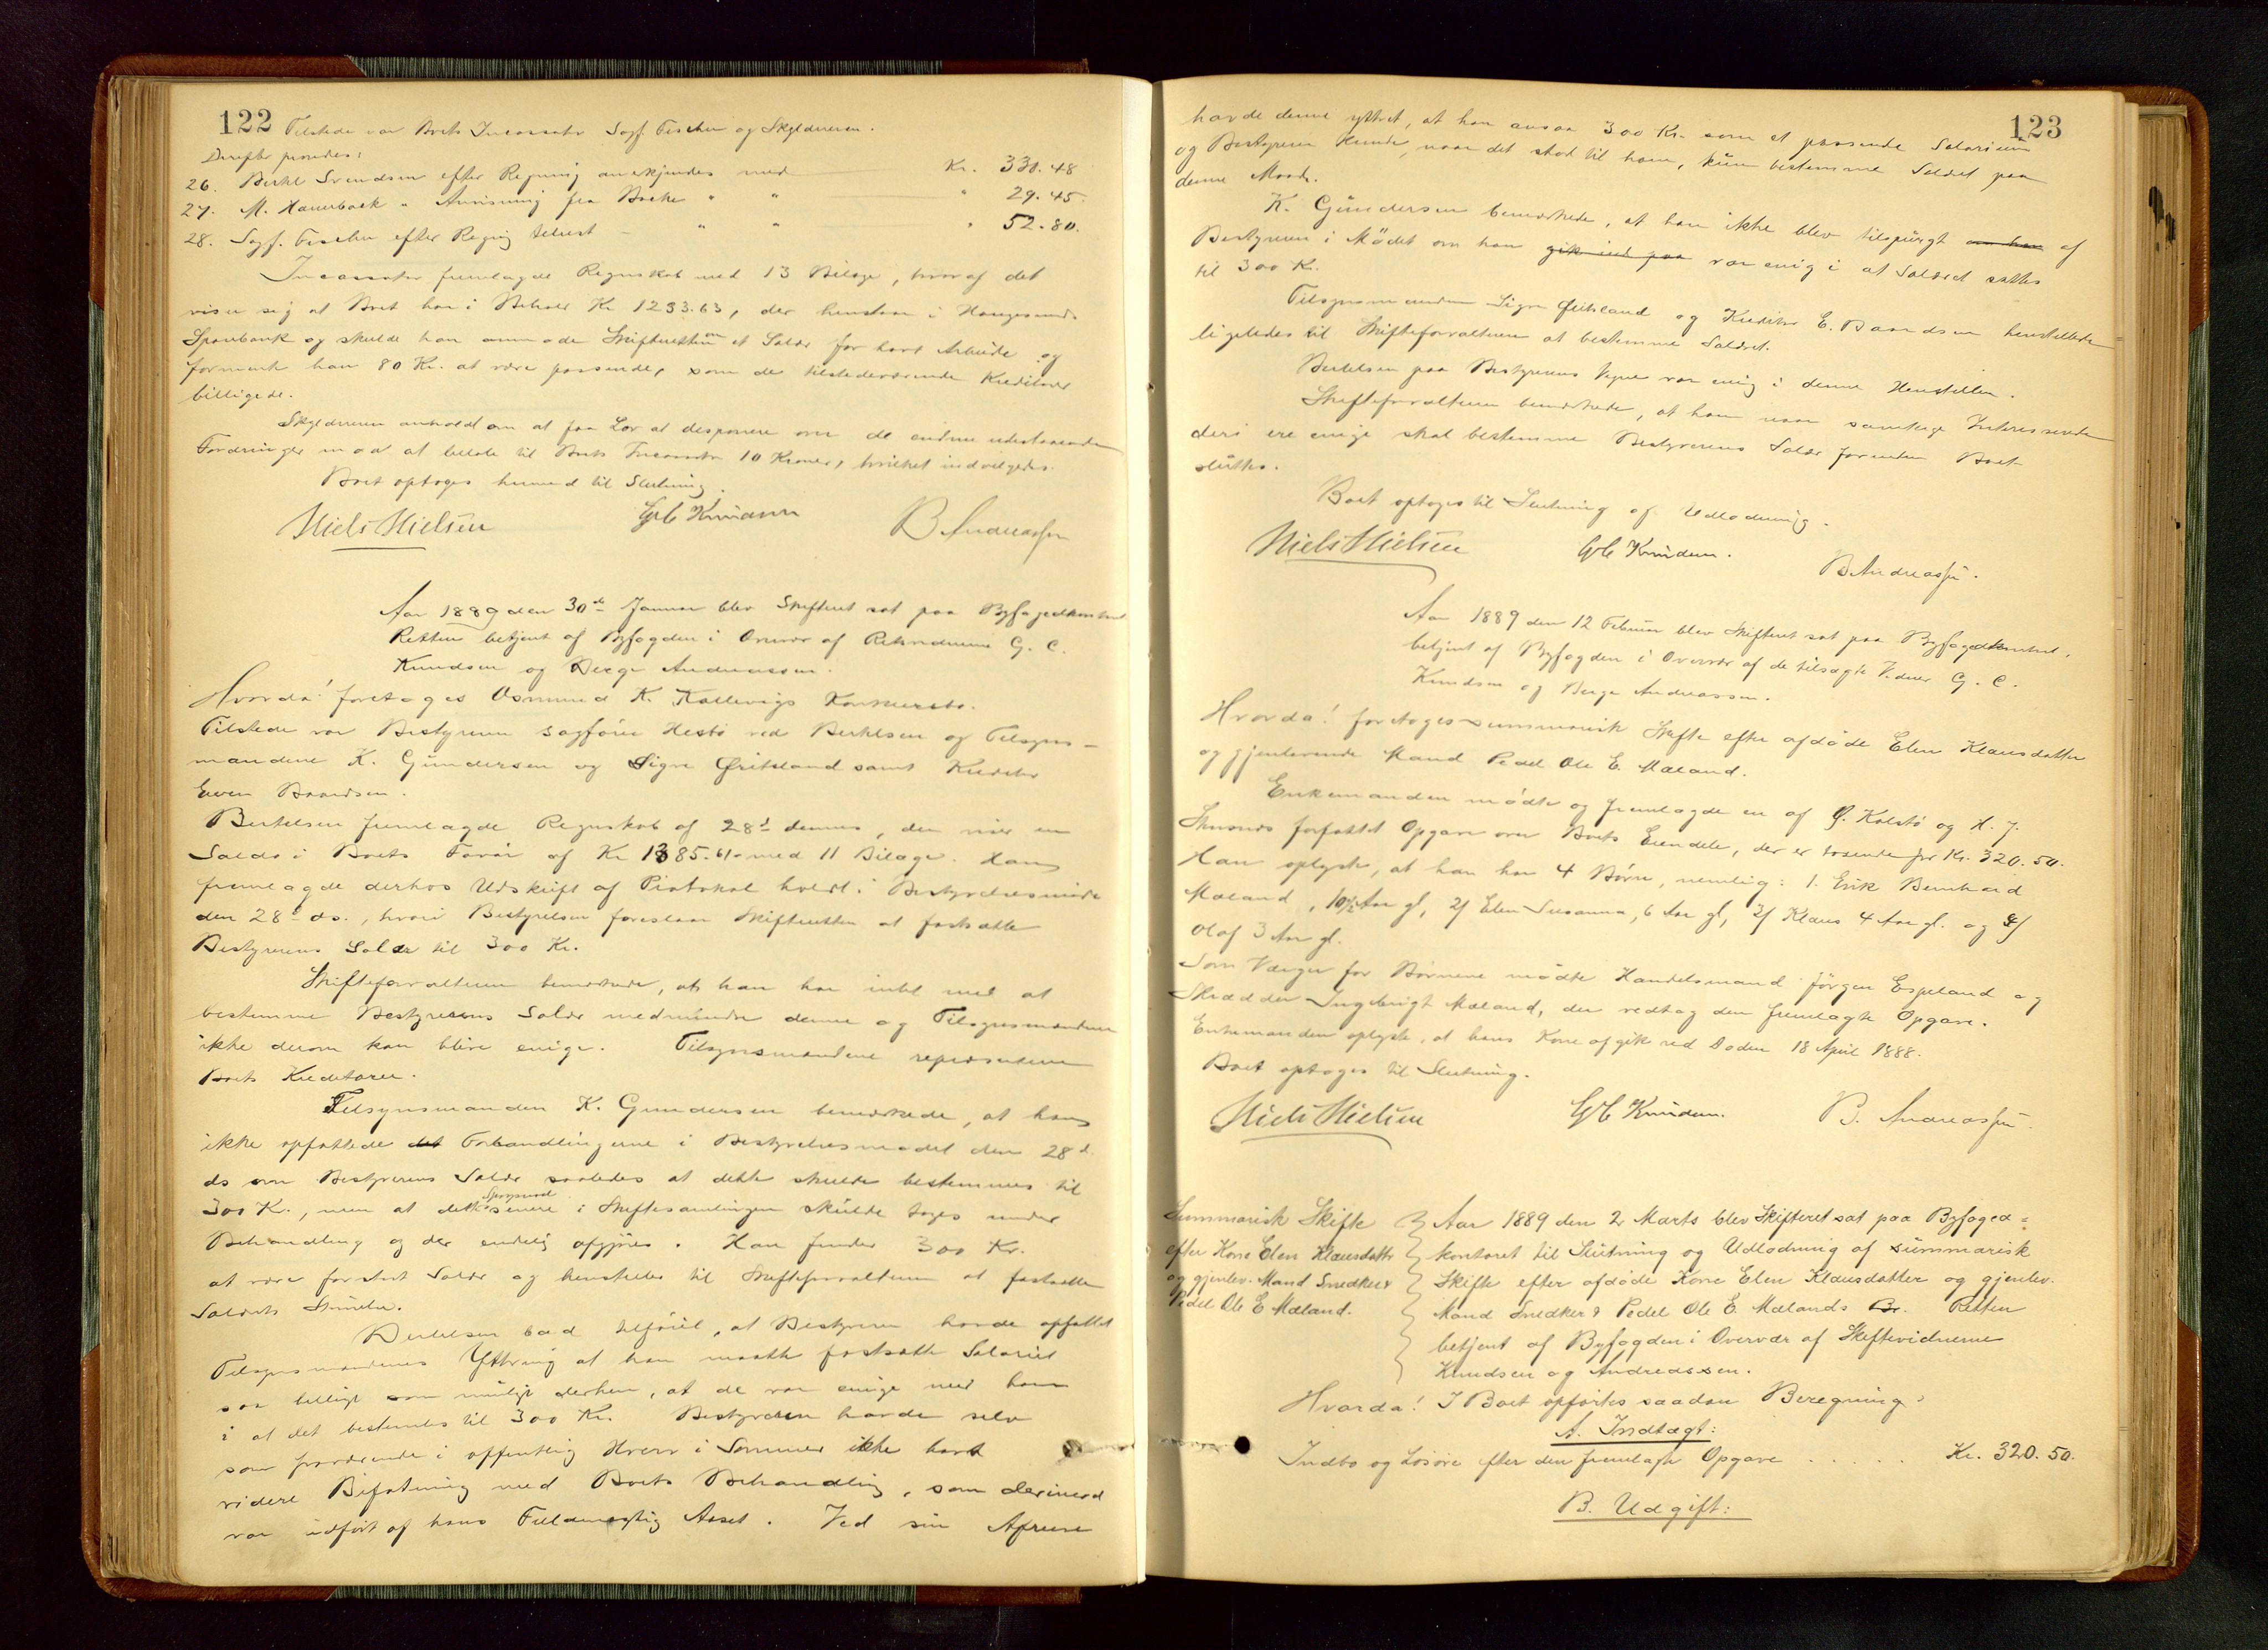 122 Tilstede var Boets Incassator Sagf. Fischer og Skyldneren.
Derefter prøvedes:
26. Bertel Svendsen efter Regning anerkjendes med Kr. 330.48
27. M. Hauerback " Anvisning fra Bakke " " " 29.45
28. Sagf. Fischer efter Regning " " " 52.80.
Incassator fremlagde Regnskab med 13 Bilage, hvoraf det
viser sig at Boet har i Behold Kr 1293.63, der henstaar i Haugesunds
Sparebank og skulde han anmode Skifteretten om et Salær for havt Arbeide og
formente han 80 Kr. at være passende, som de tilstedeværende Kreditorer
billigede.
Skyldneren anholdt om at faa Lov at disponere over de endnu udestaaende
Fordringer mod at betale til Boets Incassator 10 Kroner, hvilket indvilgedes.
Boet optoges hermed til Slutning.
Niels Nielsen GC Knudsen B Andreassen
Aar 1889 den 30de Januar blev Skifteret sat paa Byfogedkontoret
Retten betjent af Byfogden i Overvær af Retsvidnerne G. C.
Knudsen og Berge Andreassen.
Hvorda! foretoges Osmund K. Kallevigs Konkursbo.
Tilstede var Bestyreren Sagfører Hestø ved Bertelsen og Tilsyns-
mændene K. Gundersen og Sigve Øritsland samt Kreditor
Even Baardsen.
Bertelsen fremlagde Regnskab af 28d dennes, der viser en
Saldo i Boets Favør af Kr 1385.61 med 11 Bilage. Han
fremlagde derhos Udskrift af Protokol holdt i Bestyrelsesmøde
den 28d ds., hvori Bestyrelsen foreslaar Skifteretten at fastsætte
Bestyrerens Salær til 300 Kr.
Skifteforvalteren bemærkede, at han har intet med at
bestemme Bestyrerens Salær medmindre denne og Tilsynsmændene
ikke derom kan blive enige. Tilsynsmændene repræsenterer
Boets Kreditorer.
Tilsynsmanden K. Gundersen bemærkede, at han
ikke opfattede det Forhandlingerne i Bestyrelsesmødet den 28d
ds om Bestyrerens Salær saaledes at dette skulde bestemmes til
300 Kr., men at dette Spørgsmaal senere i Skiftesamlingen skulde tages under
Behandling og der endelig afgjøres. Han finder 300 Kr.
at være for stort Salær og henstiller til Skifteforvalteren at fastsætte
Salærets Størrelse.
Bertelsen bad tilført, at Bestyreren havde opfattet
Tilsynsmændenes Yttring at han maatte fastsætte Salæret
saa billigt som muligt derhen, at de var enige med ham
i at det bestemtes til 300 Kr. Bestyreren havde selv
som fraværende i offentlig Hverv i Sommer ikke havt
videre Befatning med Boets Behandling, som derimod
var udført af hans Fuldmægtig Aaset. Ved sin Afreise
123
havde denne yttret, at han ansaa 300 Kr. som et passende Salarium
og Bestyreren kunde, naar det stod til ham, kun bestemme Salæret paa
denne Maade.
K. Gundersen bemærkede, at han ikke blev tilspurgt om han af
Bestyreren i Mødet om han gik ind paa var enig i at Salæret sattes
til 300 Kr.
Tilsynsmanden Sigve Øritsland og Kreditor E. Baardsen henstillede
ligeledes til Skifteforvalteren at bestemme Salæret.
Bertelsen paa Bestyrerens Vegne var enig i denne Henstillen.
Skifteforvalteren bemærkede, at han naar samtlige Interesserede
deri ere enige skal bestemme Bestyrerens Salær forinden Boet
sluttes.
Boet optoges til Slutning og Udlodning.
Niels Nielsen GC Knudsen. B Andreassen.
Aar 1889 den 12 Februar blev Skifteret sat paa Byfogedkontoret,
betjent af Byfogden i Overvær af de tilsagte Vidner G. C.
Knudsen og Berge Andreassen.
Hvorda! foretoges summarisk Skifte efter afdøde Elen Klausdatter
og gjenlevende Mand Pedel Ole E. Mæland.
Enkemanden mødte og fremlagde en af Ø. Kalstø og H. J.
Skusnes forfattet Opgave over Boets Eiendele, der er taxerede for Kr. 320.50.
Han oplyste, at han har 4 Børn, nemlig: 1. Erik Bernhard
Mæland, 10½ Aar gl, 2/ Elen Susanna, 6 Aar gl, 3/ Klaus 4 Aar gl. og 4/
Olaf 3 Aar gl.
Som Værger for Børnene mødte Handelsmand Jørgen Espeland og
Skrædder Ingebrigt Mæland, der vedtog den fremlagte Opgave.
Enkemanden oplyste, at hans Kone afgik ved Døden 18 April 1888.
Boet optoges til Slutning.
Niels Nielsen GC Knudsen. B. Andreassen.
Summarisk Skifte
efter Kone Elen Klausdatter
og gjenlev. Mand Snedker &
Pedel Ole E Mæland.
Aar 1889 den 2. Marts blev Skifteret sat paa Byfoged=
kontoret til Slutning og Udlodning af summarisk
Skifte efter afdøde Kone Elen Klausdatter og gjenlev.
Mand Snedker & Pedel Ole E. Mælands Bo. Retten
betjent af Byfogden i Overvær af Skiftevidnerne
Knudsen og Andreassen.
Hvorda! I Boet opførtes saadan Beregning:
A. Indtægt:
Indbo og Løsøre efter den fremlagte Opgave ..... Kr. 320.50.
B. Udgift: